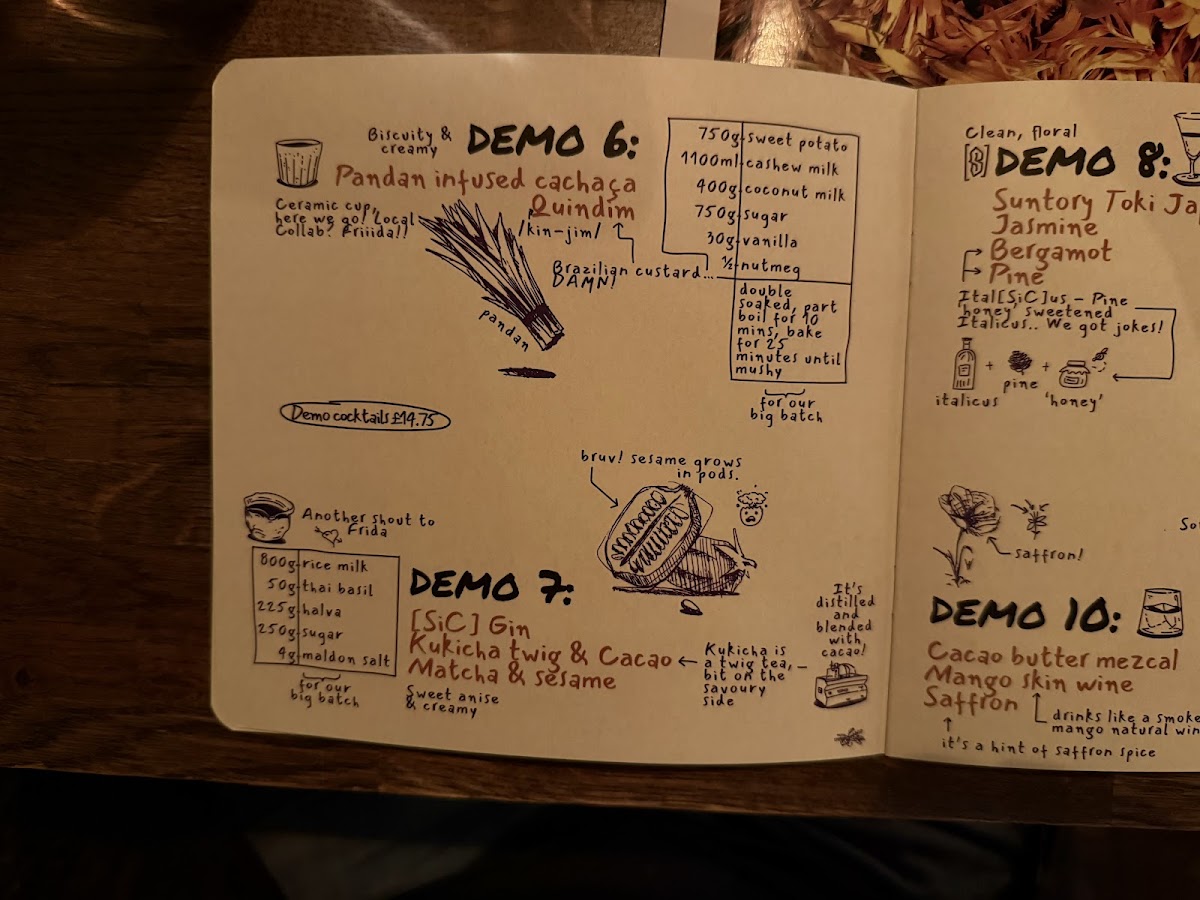 Biscuity &
creamy
DEMO 6:
Pandan infused cachaça
Quindim
/kin-jim/
Ceramic cup,
here we go! Local
Collab? Friiida!!
Brazilian custard...
DAMN!
pandan
750g sweet potato
1100ml cashew milk
400g coconut milk
750g sugar
30g vanilla
½ nutmeg
double
soaked, part
boil for 10
mins, bake
for 25
minutes until
mushy
for our
big batch
Demo cocktails £14.75
bruv! sesame grows
in pods.
Another shout to
Frida
800g rice milk
50g thai basil
225g halva
250g sugar
4g maldon salt
for our
big batch
DEMO 7:
[SiC] Gin
Kukicha twig & Cacao
Matcha & sesame
Sweet anise
& creamy
Kukicha is
a twig tea,
bit on the
savoury
side
It's
distilled
and
blended
with
cacao!
Clean, floral
[S] DEMO 8:
Suntory Toki Ja
Jasmine
Bergamot
Pine
Ital[SiC]us - Pine
'honey' sweetened
Italicus.. We got jokes!
italicus + pine + 'honey'
saffron!
So
DEMO 10:
Cacao butter mezcal
Mango skin wine
Saffron
drinks like a smoke
mango natural win
it's a hint of saffron spice